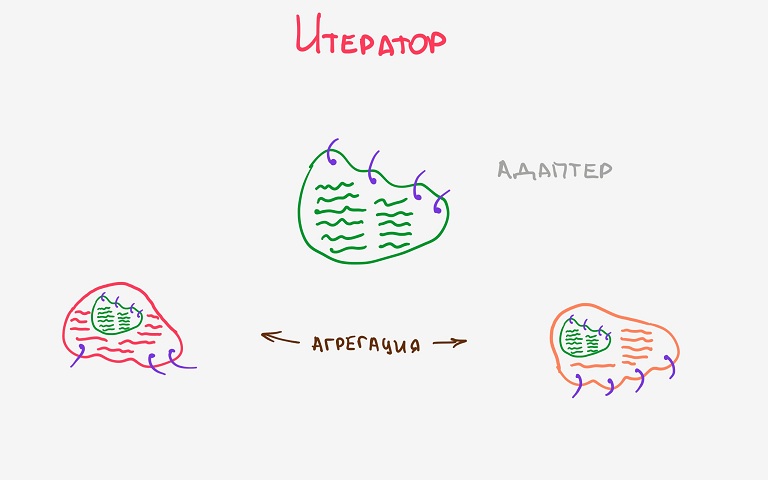 Итератор
Адаптер
Агрегация